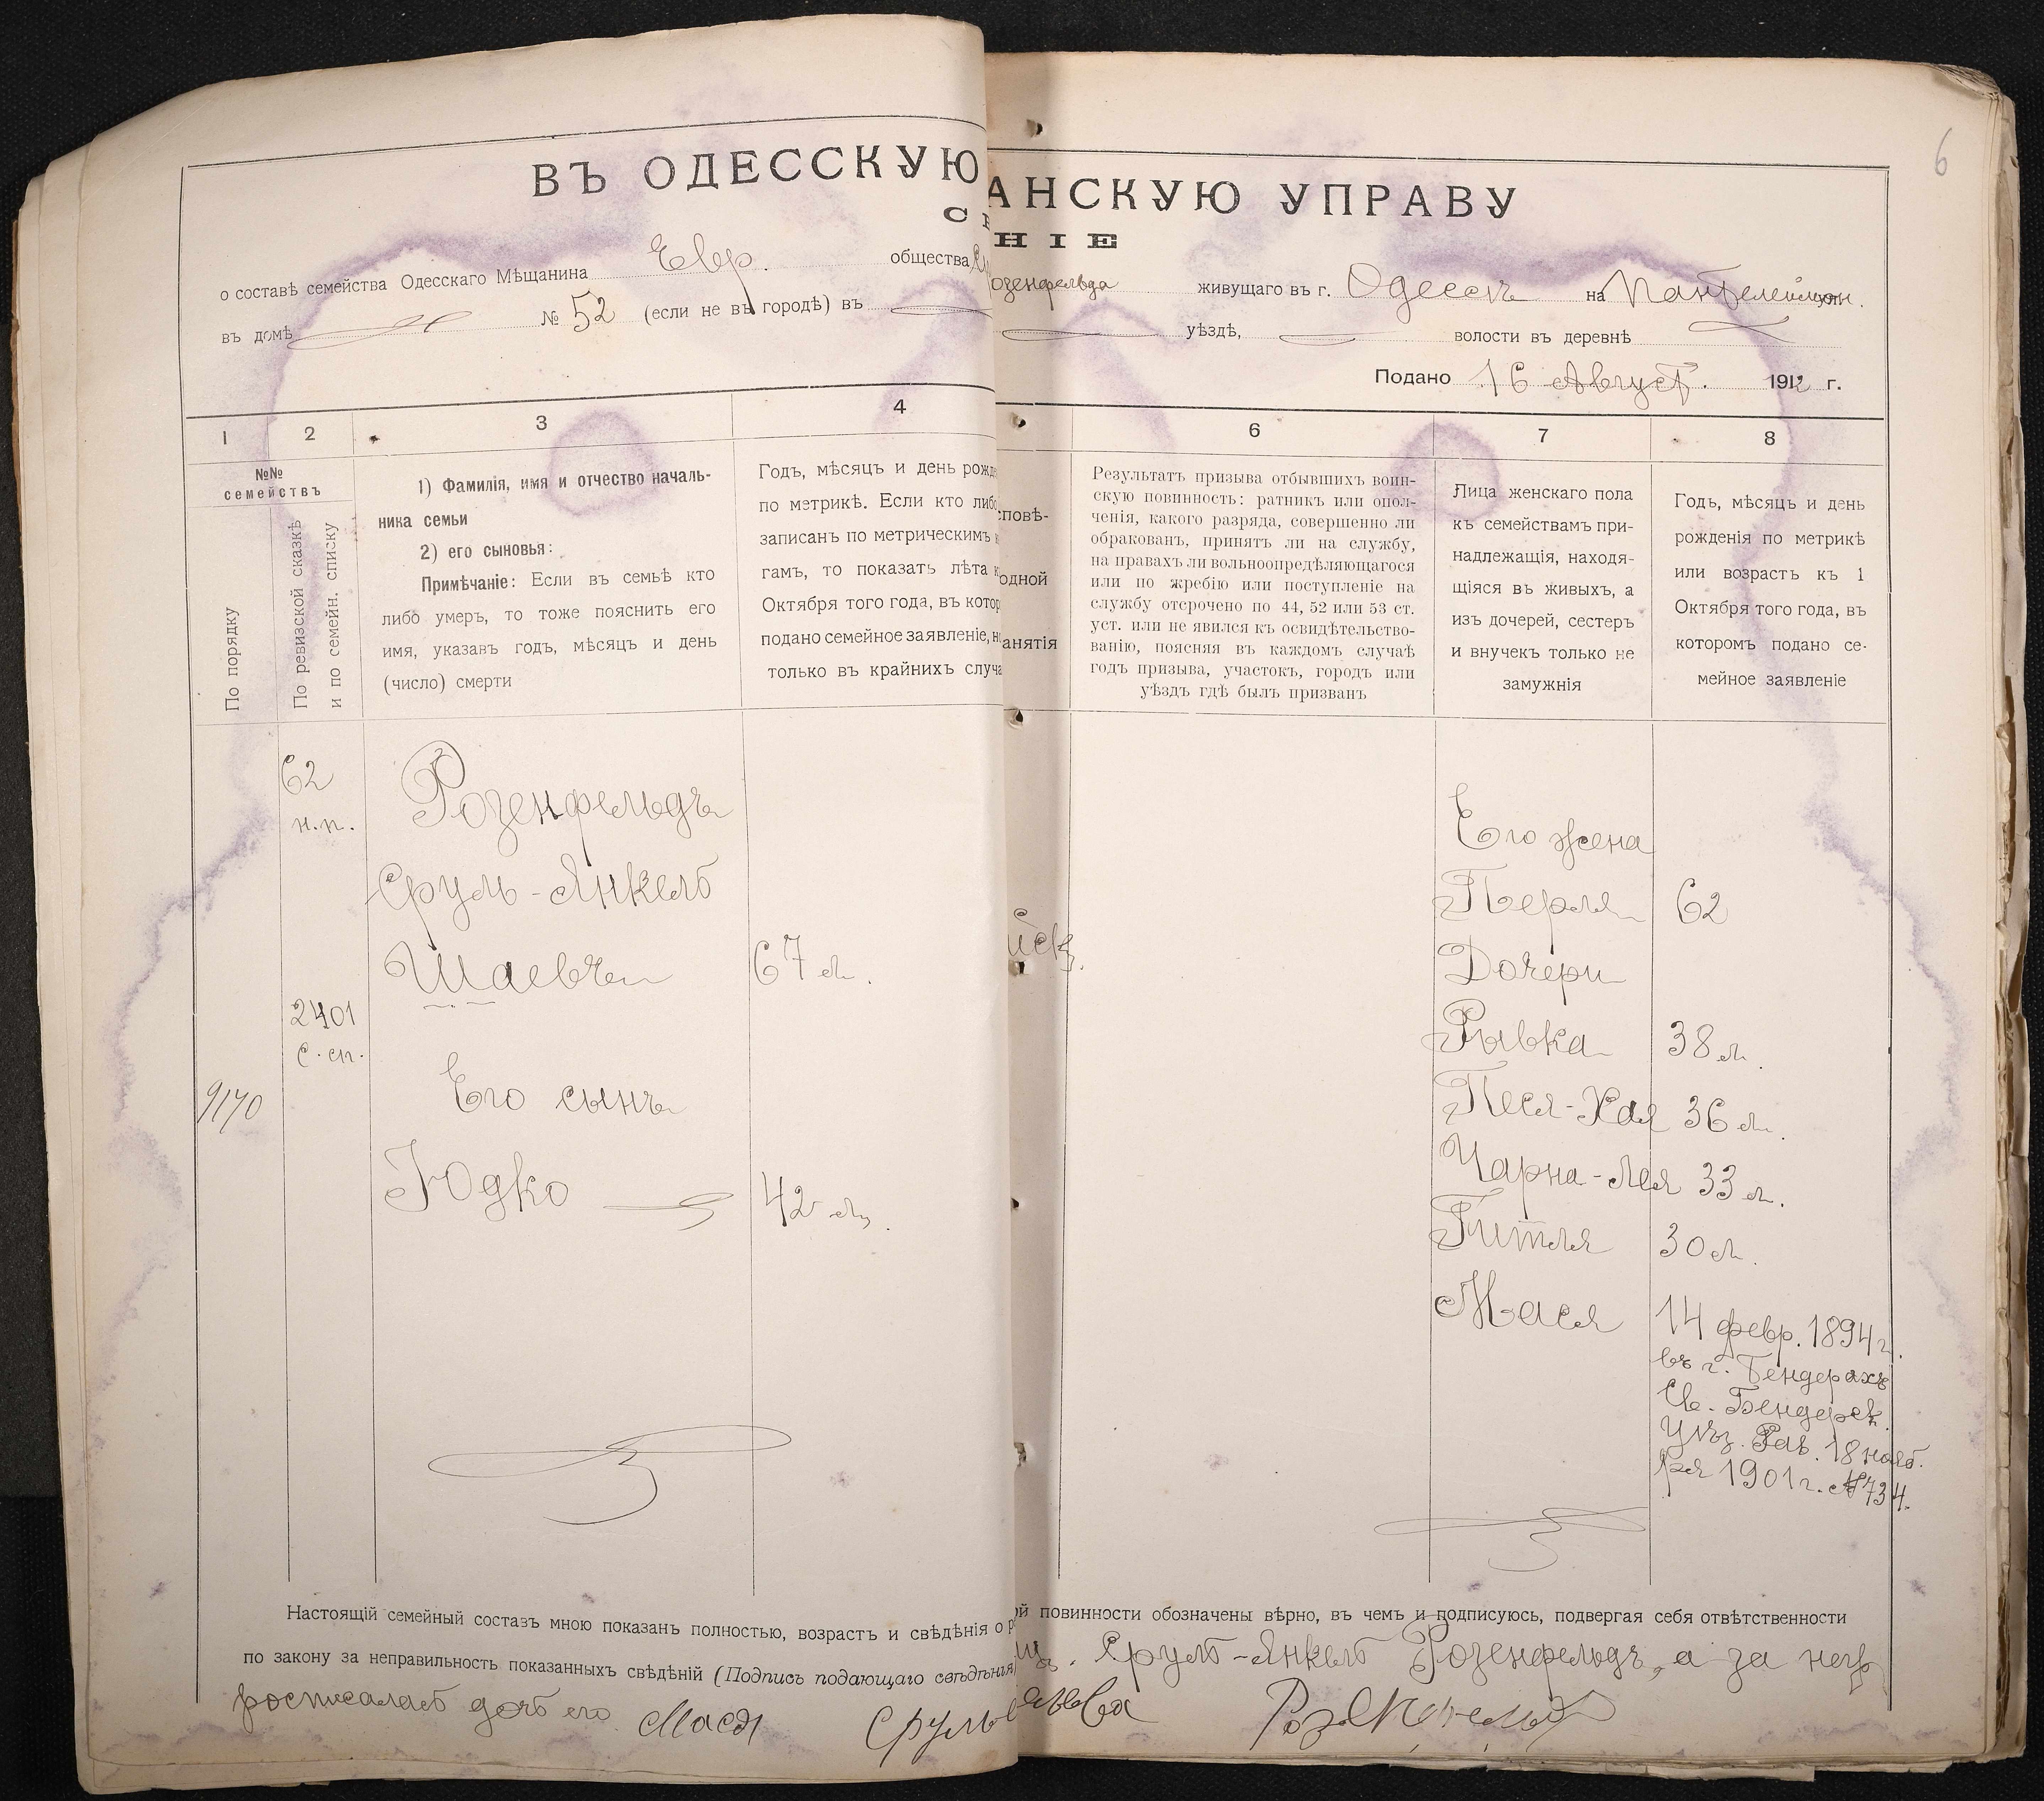 6
ВЪ ОДЕССКУЮ АНСКУЮ УПРАВУ
НІЕ
о составѣ семейства Одесскаго Мѣщанина Евр. общества озенфельда живущаго въ г. Одессѣ на Пантелеймон. ул.
въ домѣ № 52 (если не въ городѣ) въ уѣздѣ, волости въ деревнѣ
Подано 16 Август. 1912 г.
1 2 3 4 6 7 8
№№
семействъ
По порядку
По ревизской сказкѣ
и по семейн. списку
1) Фамилія, имя и отчество началь-
ника семьи
2) его сыновья:
Примѣчаніе: Если въ семьѣ кто
либо умеръ, то тоже пояснить его
имя, указавъ годъ, мѣсяцъ и день
(число) смерти
Годъ, мѣсяцъ и день рожд
по метрикѣ. Если кто либо
записанъ по метрическимъ
гамъ, то показать лѣта к
Октября того года, въ котор
подано семейное заявленіе, н
только въ крайнихъ случа
сповѣ-
одной
анятія
Результатъ призыва отбывшихъ воин-
скую повинность: ратникъ или опол-
ченія, какого разряда, совершенно ли
обракованъ, принятъ ли на службу,
на правахъ ли вольноопредѣляющагося
или по жребію или поступленіе на
службу отсрочено по 44, 52 или 53 ст.
уст. или не явился къ освидѣтельство-
ванію, поясняя въ каждомъ случаѣ
годъ призыва, участокъ, городъ или
уѣздъ гдѣ былъ призванъ
Лица женскаго пола
къ семействамъ при-
надлежащія, находя-
щіяся въ живыхъ, а
изъ дочерей, сестеръ
и внучекъ только не
замужнія
Годъ, мѣсяцъ и день
рожденія по метрикѣ
или возрастъ къ 1
Октября того года, въ
которомъ подано се-
мейное заявленіе
62
н.п.
Розенфельдъ
Сруль-Янкель
Шаевъ 67 л.
2401
с.сп.
9170
Его сынъ
Юдко 42 л.
йск.
Его жена
Перля 62
Дочери
Рывка 38 л.
Песя-Хая 36 л.
Чарна-Лея 33 л.
Гитля 30 л.
Мася 14 февр. 1894 г.
въ г. Бендерахъ
Св. Бендерск.
Уѣз. Рав. 18 нояб-
ря 1901 г. №734.
Настоящій семейный составъ мною показанъ полностью, возрастъ и свѣдѣнія о ой повинности обозначены вѣрно, въ чемъ и подписуюсь, подвергая себя отвѣтственности
по закону за неправильность показанныхъ свѣдѣній (Подпись подающаго свѣдѣнія Сруль-Янкель Розенфельдъ, а за него
росписалась дочь его Мася Срульева Розенфельд